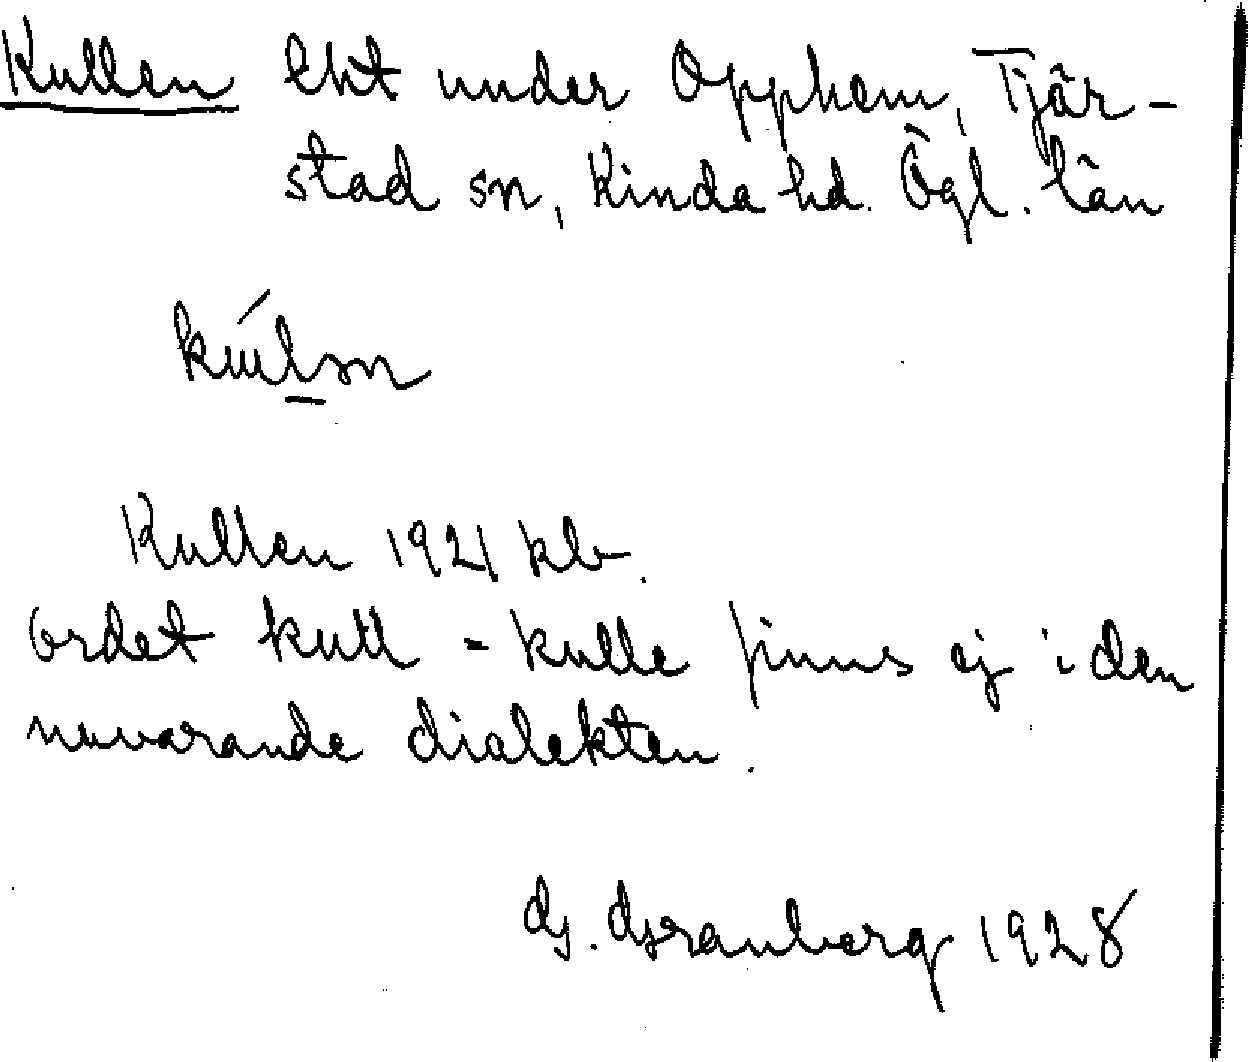 Kullen lht under Opphem, Tjär-
stad sn, Kinda hd. Ögl. län
Kullen 1921 klb.
Ordet kull - kulle finns ej i den
nuvarande dialekten.
G. Granberg 1928